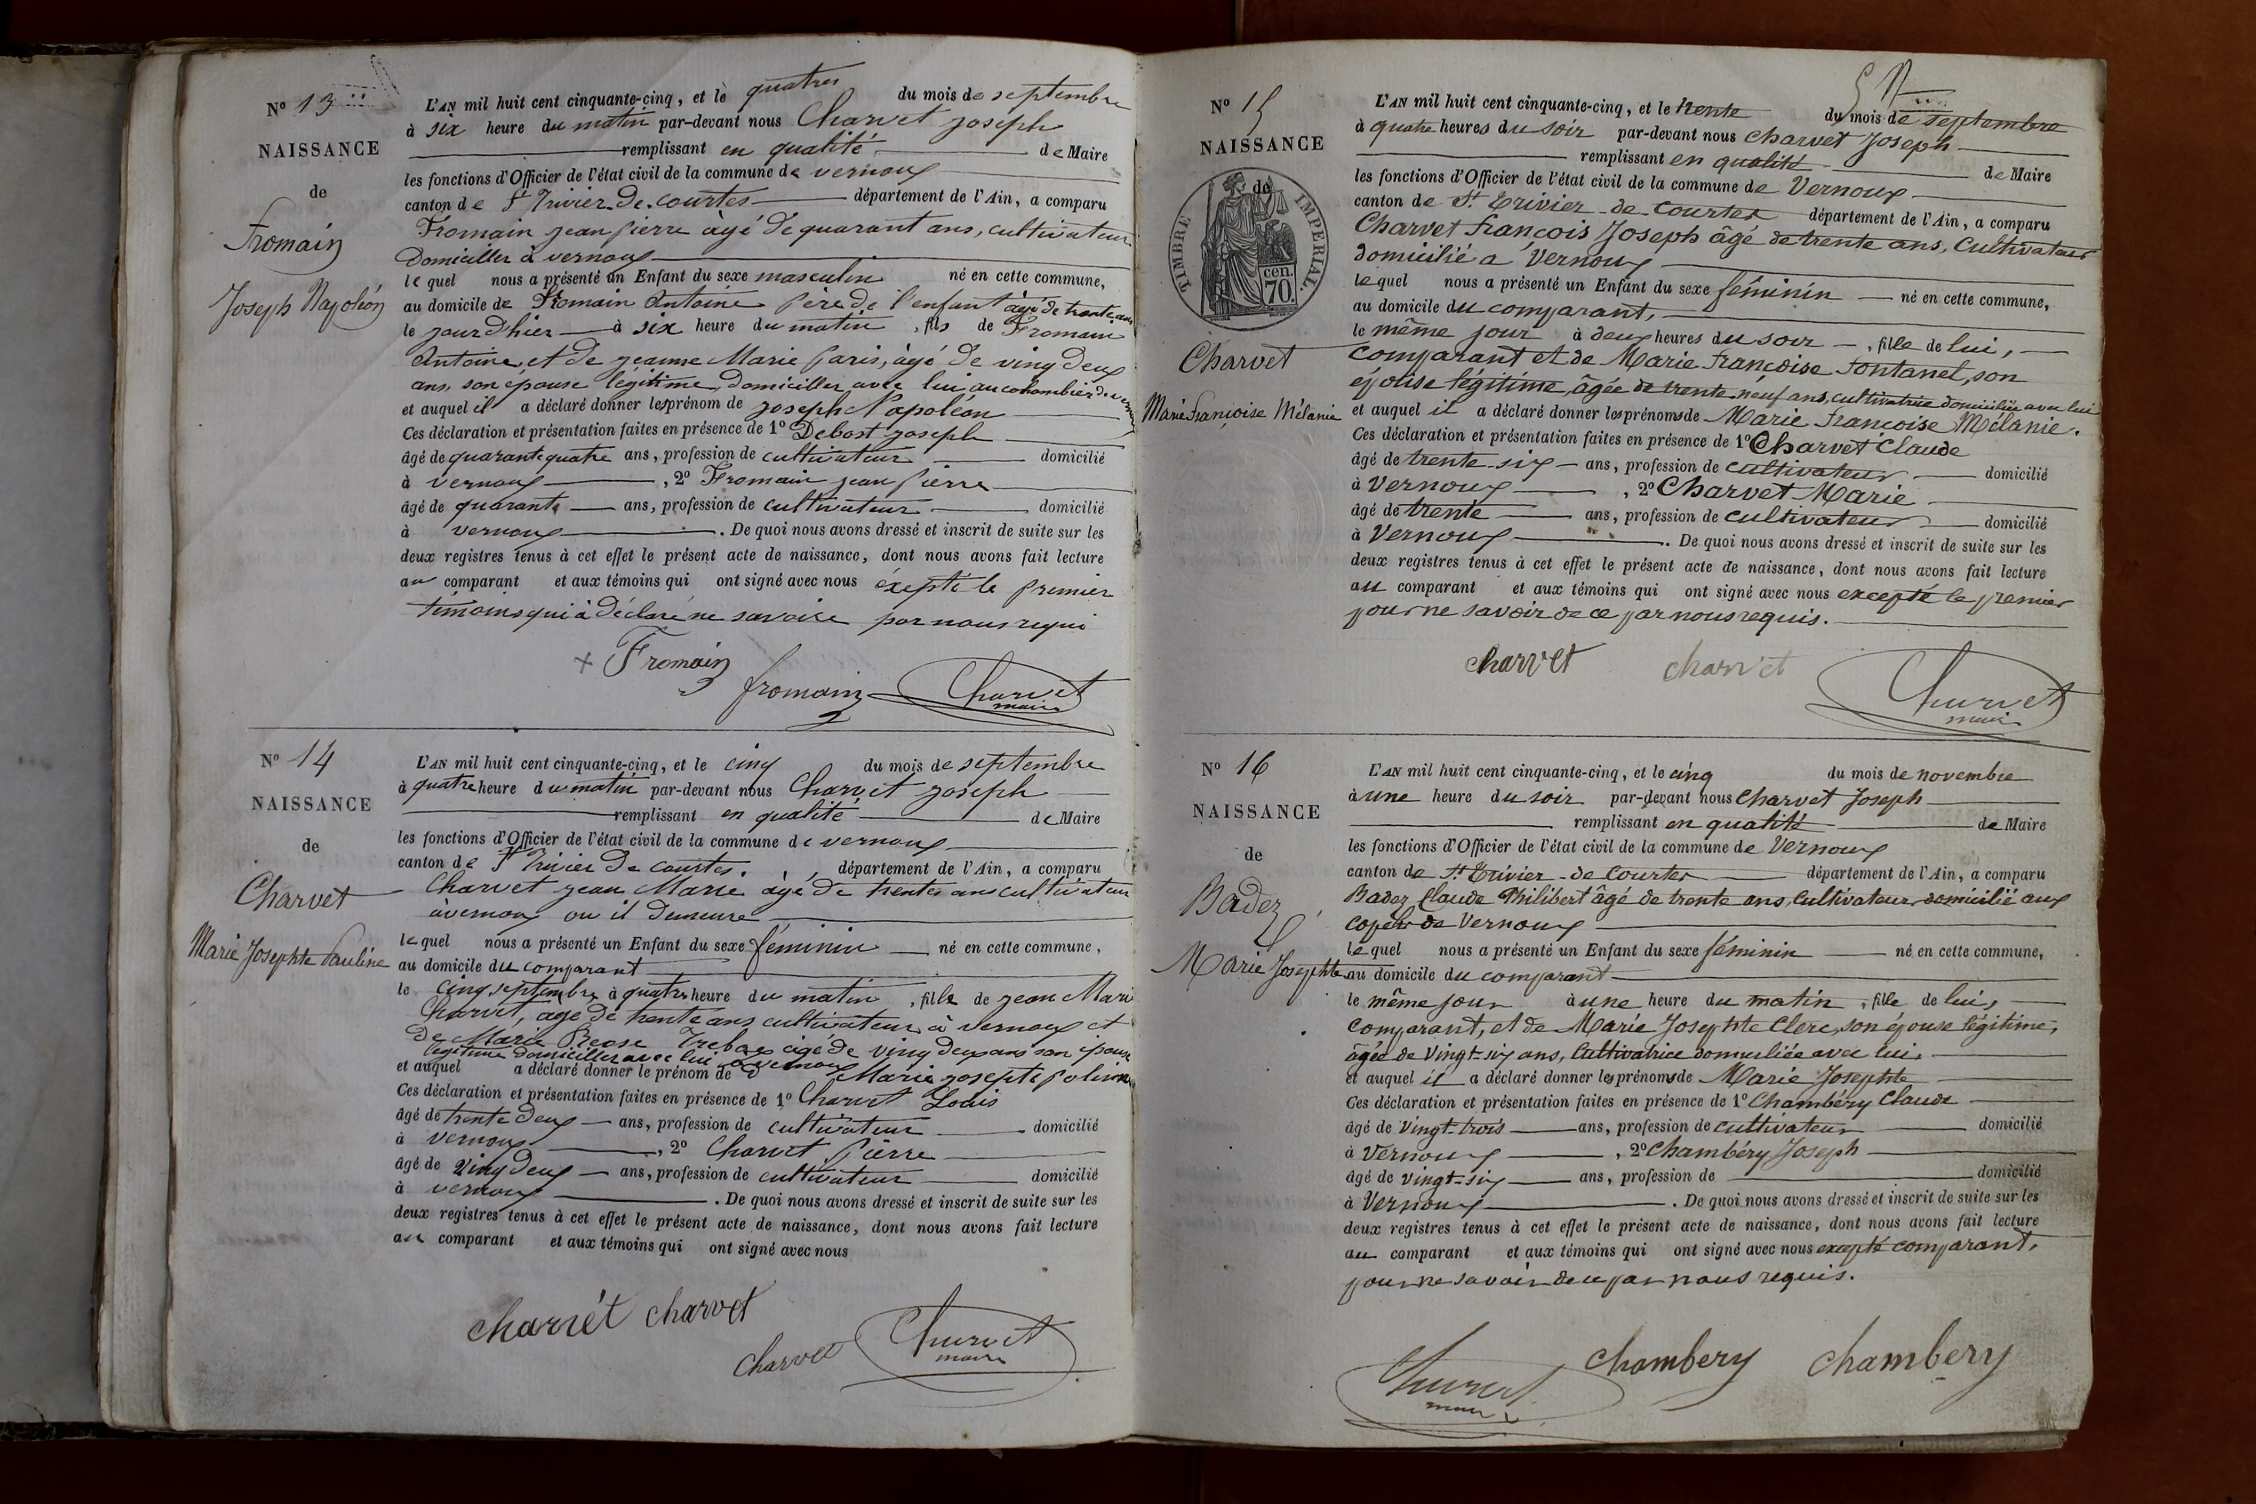 Nº 13
NAISSANCE
de
Fromain
Joseph Napoléon
L'AN mil huit cent cinquante-cinq, et le quatres du mois de septembre
à six heure du matin par-devant nous Charvet joseph
remplissant en qualité de Maire
les fonctions d'Officier de l'état civil de la commune de vernoux
canton de St Trivier de courtes département de l'Ain, a comparu
Fromain jean pierre àgé de quarant ans, cultivateur
domiciller à vernoux
le quel nous a présenté un Enfant du sexe masculin né en cette commune,
au domicile de Fromain Antoine père de l'enfant àgé de trente ans
le jourdhier à six heure du matin, fils de Fromain
Antoine, et de jeanne Marie paris, àgé de ving deux
ans, son épouse légitime, domiciller avec lui au colombier de vernoux
et auquel il a déclaré donner les prénom de joseph Napoléon
Ces déclaration et présentation faites en présence de 1º Debost joseph
âgé de quarante quatre ans, profession de cultivateur domicilié
à vernoux, 2º Fromain jean pierre
âgé de quarante ans, profession de cultivateur domicilié
à vernoux. De quoi nous avons dressé et inscrit de suite sur les
deux registres tenus à cet effet le présent acte de naissance, dont nous avons fait lecture
au comparant et aux témoins qui ont signé avec nous éxepté le premier
témoins qui à déclaré ne savoire par nous requi
+ Fromain
fromain Charvet
maire
Nº 14
NAISSANCE
de
Charvet
Marie Josephte Pauline
L'AN mil huit cent cinquante-cinq, et le cinq du mois de septembre
à quatre heure du matin par-devant nous Charvet joseph
remplissant en qualité de Maire
les fonctions d'Officier de l'état civil de la commune de vernoux
canton de St Trivier de courtes. département de l'Ain, a comparu
Charvet jean Marie àgé de trentes ans cultivateur
à vernoux ou il demeure
le quel nous a présenté un Enfant du sexe féminin né en cette commune,
au domicile du comparant
le cinq septembre à quatre heure du matin, fille de jean Marie
Charvet, age de trente ans cultivateur à vernoux et
de Marie Reose age de ving deux ans son épouse
légitime domiciller avec lui à vernoux
et auquel a déclaré donner le prénom de Marie josepte poline
Ces déclaration et présentation faites en présence de 1º Charvet Louis
âgé de trente deux ans, profession de cultivateur domicilié
à vernoux, 2º Charvet pierre
âgé de ving deux ans, profession de cultivateur domicilié
à vernoux. De quoi nous avons dressé et inscrit de suite sur les
deux registres tenus à cet effet le présent acte de naissance, dont nous avons fait lecture
au comparant et aux témoins qui ont signé avec nous
charvet charvet
charvet Charvet
maire
Nº 15
NAISSANCE
de
TIMBRE IMPERIAL.
70. cen.
Charvet
Marie Françoise Mélanie
L'AN mil huit cent cinquante-cinq, et le trente du mois de septembre
à quatre heures du soir par-devant nous Charvet Joseph
remplissant en qualité de Maire
les fonctions d'Officier de l'état civil de la commune de Vernoux
canton de St Trivier-de-Courtes département de l'Ain, a comparu
Charvet François Joseph âgé de trente ans, Cultivateur
domicilié à Vernoux
le quel nous a présenté un Enfant du sexe féminin né en cette commune,
au domicile du comparant,
le même jour à deux heures du soir, fille de lui,
comparant et de Marie Françoise Fontanel, son
épouse légitime, âgée de trente-neuf ans, cultivatrice domiciliée avec lui
et auquel il a déclaré donner les prénoms de Marie Françoise Mélanie.
Ces déclaration et présentation faites en présence de 1º Charvet Claude
âgé de trente-six ans, profession de cultivateur domicilié
à Vernoux, 2º Charvet Marie
âgé de trente ans, profession de cultivateur domicilié
à Vernoux. De quoi nous avons dressé et inscrit de suite sur les
deux registres tenus à cet effet le présent acte de naissance, dont nous avons fait lecture
au comparant et aux témoins qui ont signé avec nous excepté le premier
pour ne savoir de ce par nous requis.
charvet charvet Charvet
maire
Nº 16
NAISSANCE
de
Badez
Marie Josephte
L'AN mil huit cent cinquante-cinq, et le cinq du mois de novembre
à une heure du soir par-devant nous Charvet Joseph
remplissant en qualité de Maire
les fonctions d'Officier de l'état civil de la commune de Vernoux
canton de St Trivier-de-Courtes département de l'Ain, a comparu
Badez Claude Philibert âgé de trente ans, Cultivateur domicilié aux
de Vernoux
le quel nous a présenté un Enfant du sexe féminin né en cette commune,
au domicile du comparant
le même jour à une heure du matin, fille de lui,
comparant, et de Marie Josephte Clerc, son épouse légitime,
âgée de Vingt-six ans, Cultivatrice domiciliée avec lui,
et auquel il a déclaré donner les prénoms de Marie Josephte
Ces déclaration et présentation faites en présence de 1º Chambéry Claude
âgé de vingt-trois ans, profession de cultivateur domicilié
à Vernoux, 2º Chambéry Joseph
âgé de vingt-six ans, profession de domicilié
à Vernoux. De quoi nous avons dressé et inscrit de suite sur les
deux registres tenus à cet effet le présent acte de naissance, dont nous avons fait lecture
au comparant et aux témoins qui ont signé avec nous excepté comparant,
pour ne savoir de ce par nous requis.
Charvet chambery chambery
maire